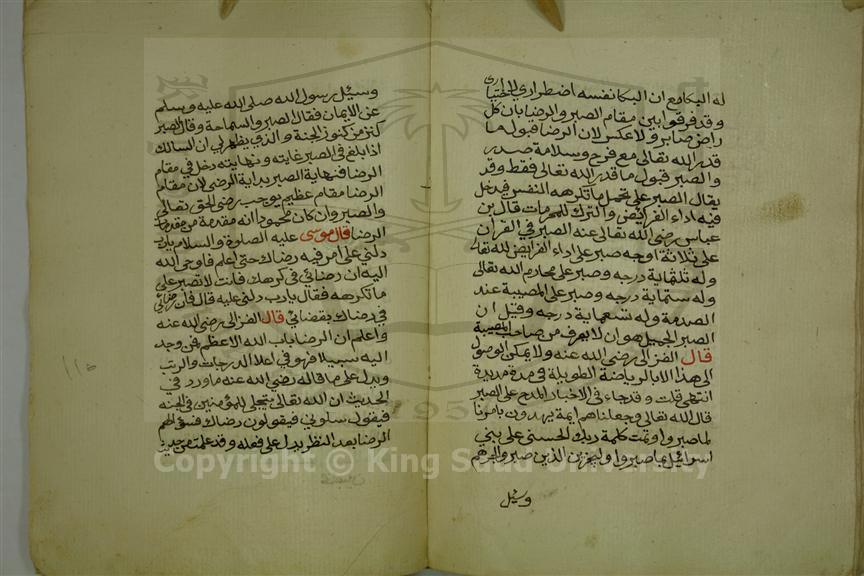 له البكا مع ان البكا نفسه اضطراري لا اختياري
وقد فرقوا بين مقام الصبر والرضا بان كل
راض صابر ولا عكس لان الرضا قبول ما
قدر الله تعالى مع فرح وسلامة صدر
والصبر قبول ما قدر الله تعالى فقط وقد
يقال الصبر على تحمل ما تكرهه النفس فيدخل
فيه اداء الفرائض والترك للمحرمات قال بن
عباس رضي الله تعالى عنه الصبر في القران
على ثلاثة اوجه صبر على اداء الفرائض لله تعالى
وله ثلثماية درجه وصبر على محارم الله تعالى
وله ستماية درجه وصبر على المصيبة عند
الصدمة وله تسعماية درجه وقيل ان
الصبر الجميل هو ان لا يعرف من صاحب المصيبة
قال الغزالى رضي الله عنه ولا يمكن الوصول
الى هذا الا بالرياضة الطويلة في مدة مديدة
انتهى قلت وقد جاء في الاخبار المدح على الصبر
قال الله تعالى وجعلناهم ايمة يهدون بامرنا
لما صبروا وتمت كلمة ربك الحسنى على بني
اسرائيل بما صبروا وليجزين الذين صبروا اجرهم
وسيل
وسئل رسول الله صلى الله عليه وسلم
عن الايمان فقال الصبر والسماحة وقال الصبر
كنز من كنوز الجنة والذي يظهر لي ان السالك
اذا بلغ في الصبر غايته ونهايته دخل في مقام
الرضا فنهاية الصبر بداية الرضى لان مقام
الرضا مقام عظيم يوجب رضى الحق تعالى
والصبر وان كان محمودا انه مقدمة من مقدمات
الرضا قال موسى عليه الصلوة والسلام يارب
دلني على امر فيه رضاك حتى اعلم فاوحى الله
اليه ان رضائي في كرهك فانت لا تصبر على
ما تكرهه فقال يارب دلني عليه قال فان رضائي
في رضاك بقضائي قال الغزالى رضي الله عنه
واعلم ان الرضا باب الله الاعظم فمن وجد
اليه سبيلا فهو في اعلا الدرجات والرتب
ويدل على ما قاله رضي الله عنه ما ورد في
الحديث ان الله تعالى يتجلى للمؤمنين في الجنه
فيقول سلوني فيقولون رضاك فسؤالهم
الرضا بعد النظر يدل على فضله وقد علمت من حديث
Copyright © King Saud University